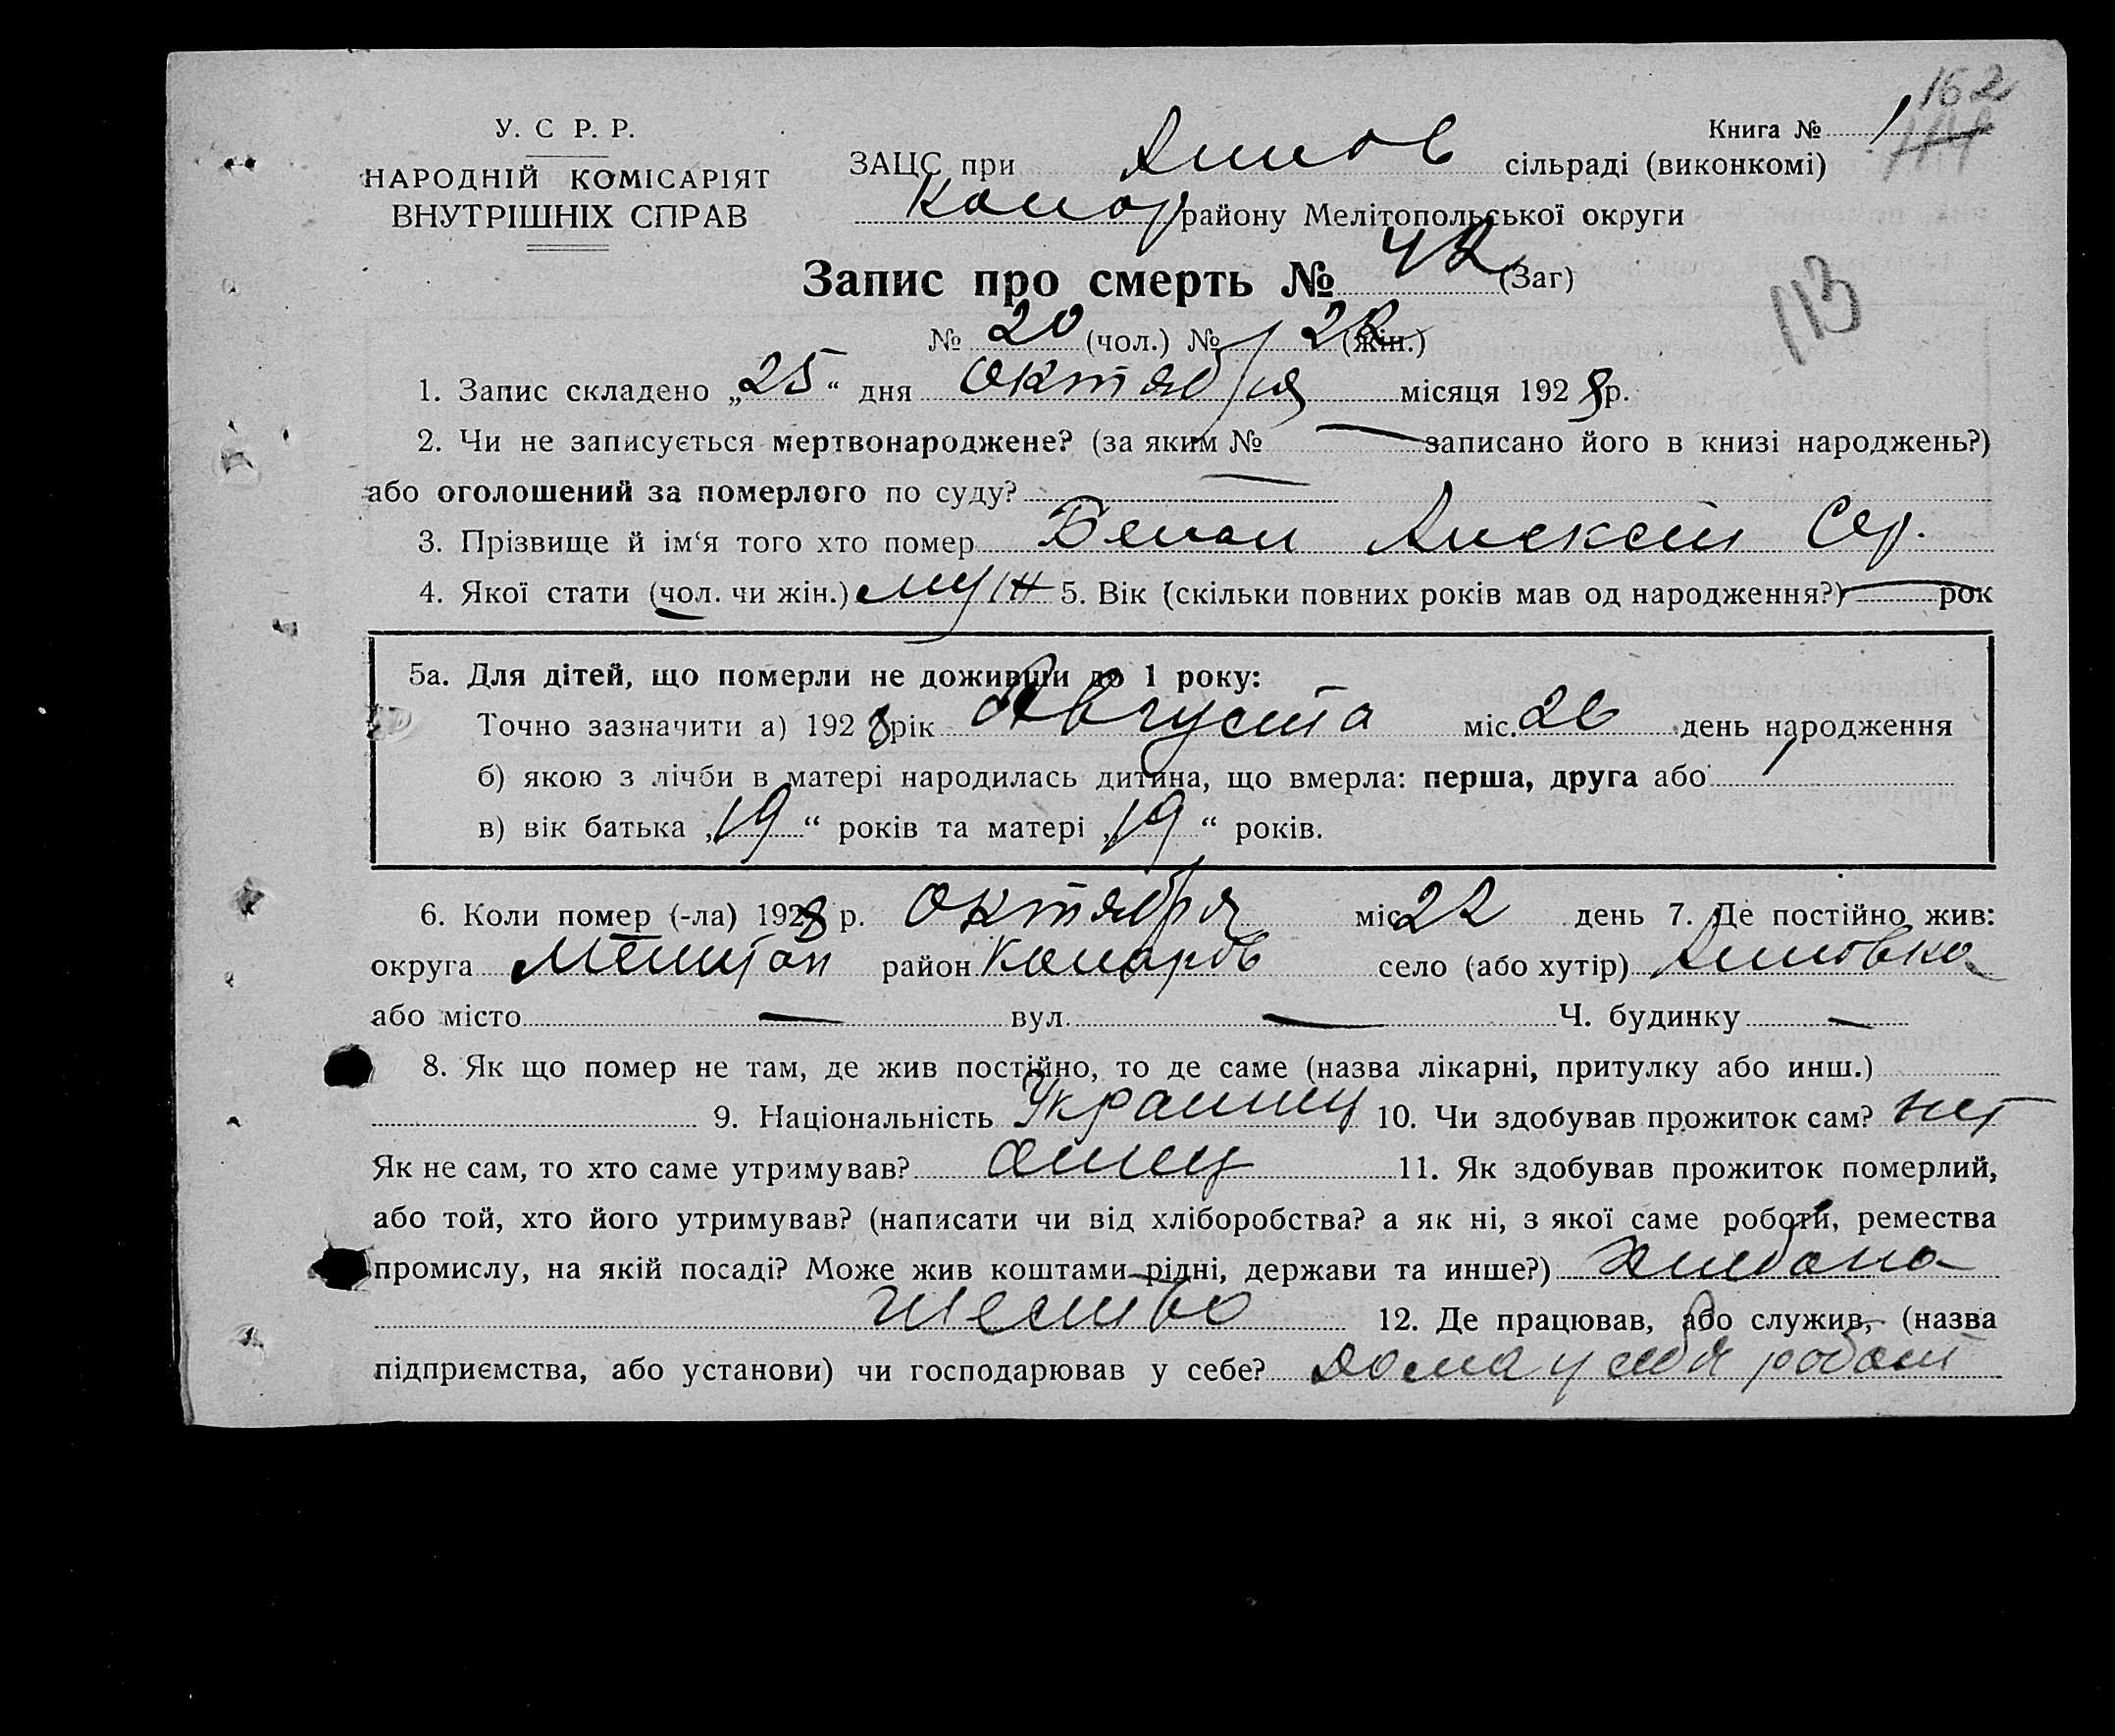 162
У. С Р. Р.
Книга № 1
ЗАЦС при сільраді (виконкомі)
НАРОДНІЙ КОМІСАРІЯТ
ВНУТРІШНІХ СПРАВ
району Мелітопольської округи
Запис про смерть № 42 (Заг)
113
№ 20 (чол.) № 22 (жін.)
1. Запис складено „25“ дня октября місяця 1928 р.
2. Чи не записується мертвонароджене? (за яким № — записано його в книзі народжень?)
або оголошений за померлого по суду? —
3. Прізвище й ім‘я того хто помер Алексей Сер.
4. Якої стати (чол. чи жін.) муж 5. Вік (скільки повних років мав од народження?) — рок
5а. Для дітей, що померли не доживши до 1 року:
Точно зазначити а) 1928 рік Августа міс. 26 день народження
б) якою з лічби в матері народилась дитина, що вмерла: перша, друга або 1
в) вік батька „19“ років та матері „19“ років.
6. Коли помер (-ла) 1928 р. Октября міс 22 день 7. Де постійно жив:
округа Мелитоп район село (або хутір)
або місто — вул. — Ч. будинку —
8. Як що помер не там, де жив постійно, то де саме (назва лікарні, притулку або инш.)
9. Національність Украинец 10. Чи здобував прожиток сам? нет
Як не сам, то хто саме утримував? отец 11. Як здобував прожиток померлий,
або той, хто його утримував? (написати чи від хліборобства? а як ні, з якої саме роботи, ремества
промислу, на якій посаді? Може жив коштами рідні, держави та инше?) хлебопа
шество 12. Де працював, або служив, (назва
підприємства, або установи) чи господарював у себе? Дома у себя работ